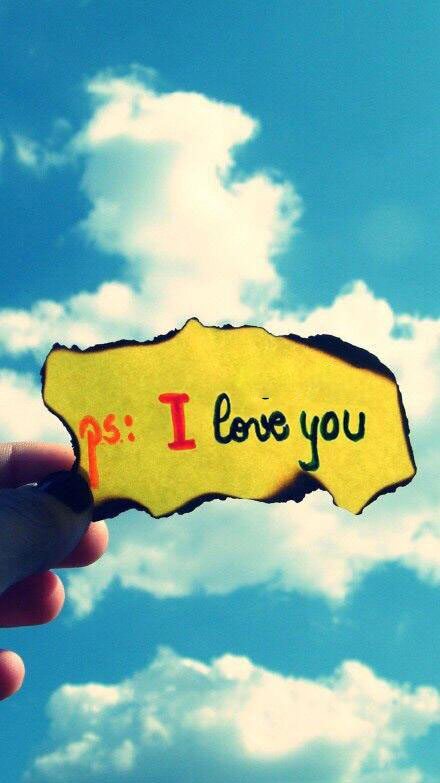 ps: I love you